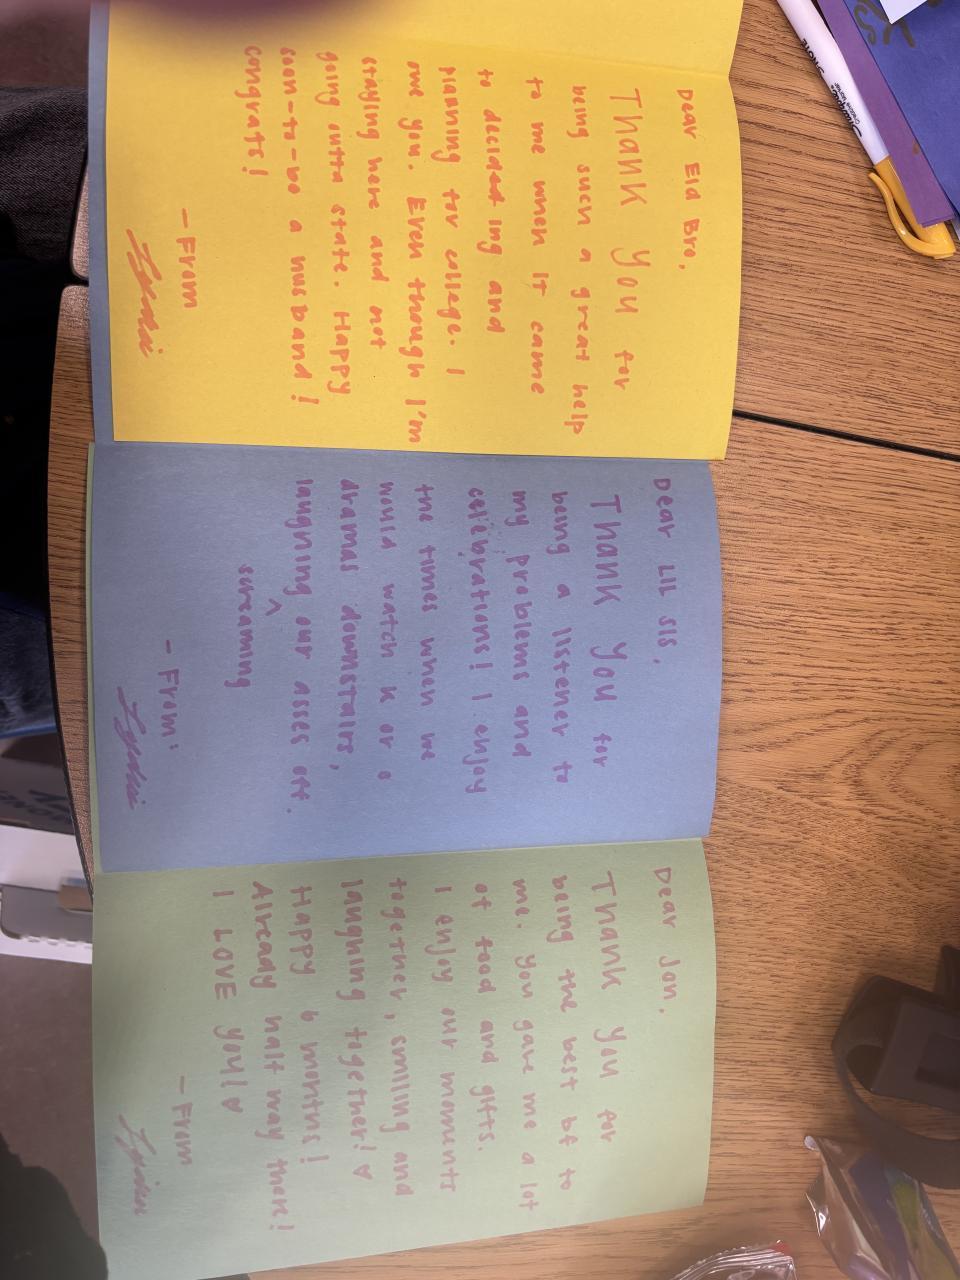 Dear Eld Bro,
Thank you for
being such a great help
to me when it came
to decideding and
planning for college. I
owe you. Even though I'm
staying here and not
going outta state. Happy
soon-to-be a husband!
congrats!
- From
Dear Lil sis,
Thank you for
being a listener to
my problems and
celebrations! I enjoy
the times when we
would watch k or c
dramas downstairs,
laughing our asses off.
^
screaming
- From:
Dear Jon,
Thank you for
being the best bf to
me. You gave me a lot
of food and gifts.
I enjoy our moments
together, smiling and
laughing together! ♡
Happy 6 months!
Already half way there!
I LOVE you! ♡
- From